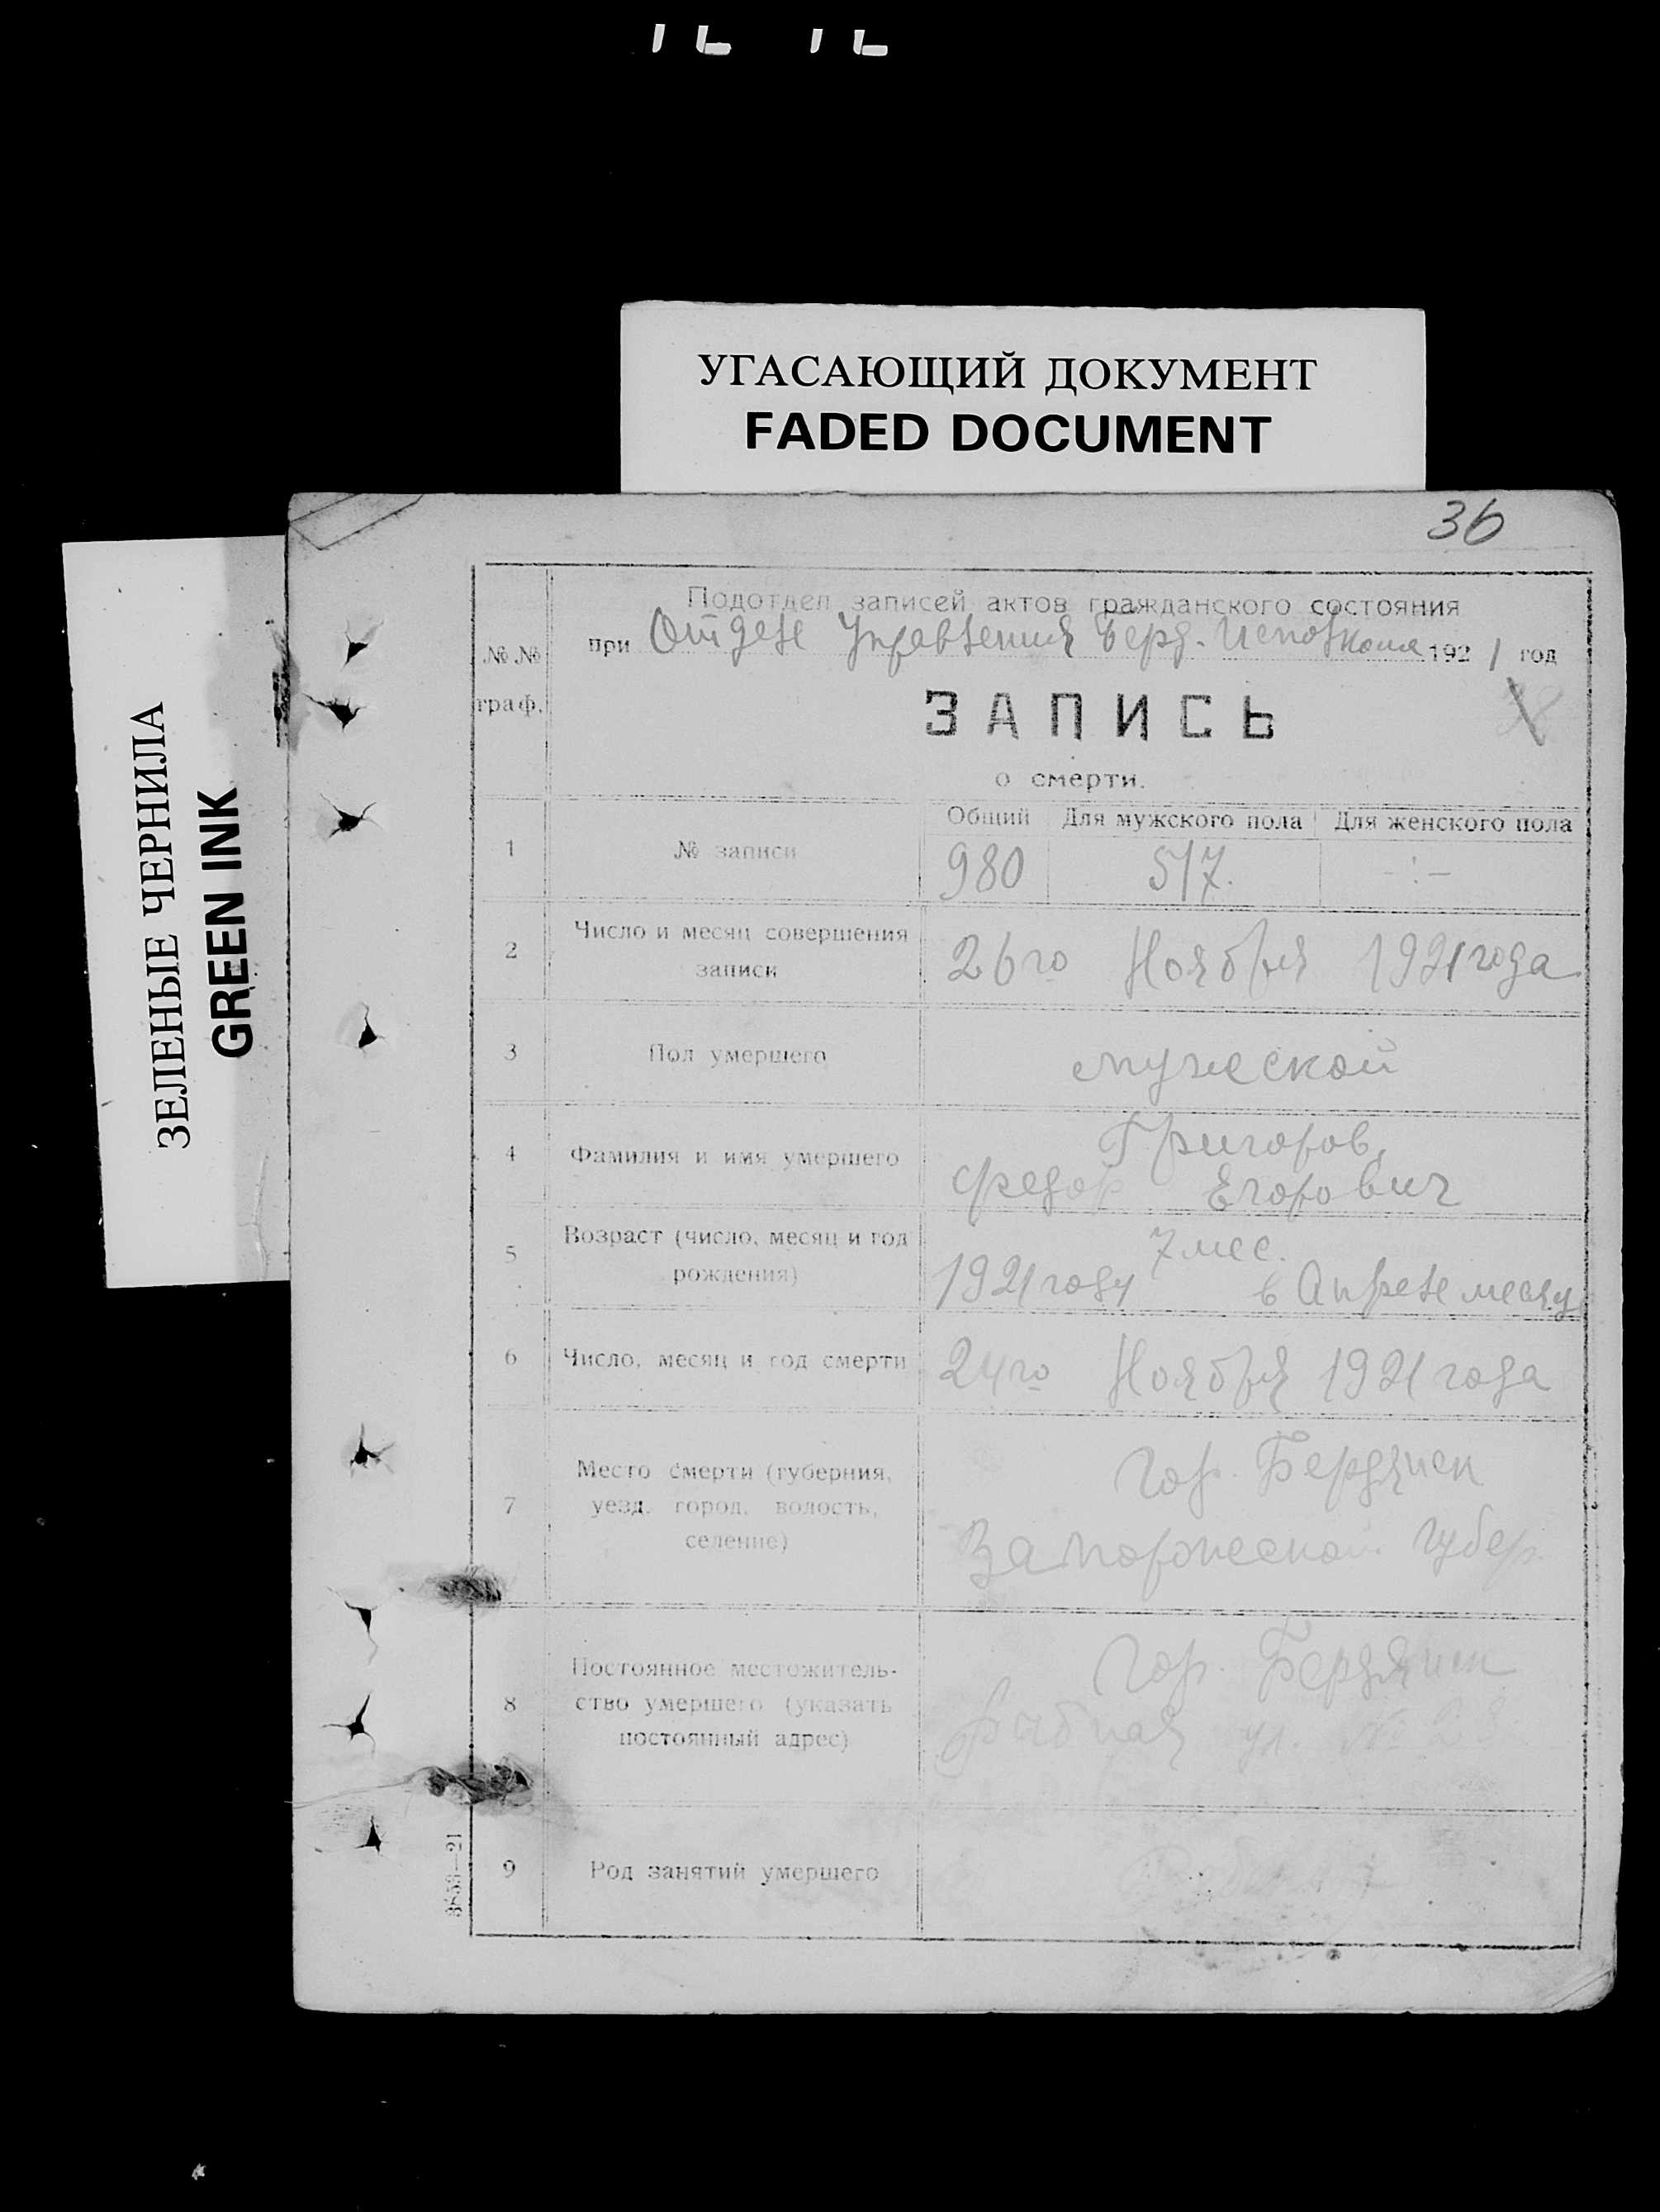 УГАСАЮЩИЙ ДОКУМЕНТ
FADED DOCUMENT
ЗЕЛЕНЫЕ ЧЕРНИЛА
GREEN INK
36
Подотдел записей актов гражданского состояния
при Отделе Управления Берд. Исполкома 1921 год
№№ граф.
ЗАПИСЬ
о смерти.
Общий Для мужского пола Для женского пола
1 № записи 980 517. -:-
2 Число и месяц совершения
записи 26го Ноября 1921 года
3 Пол умершего мужской
4 Фамилия и имя умершего Григоров,
Федор Егорович
5 Возраст (число, месяц и год
рождения) 7 мес.
1921 году в Апреле месяце
6 Число, месяц и год смерти 24го Ноября 1921 года
7 Место смерти (губерния,
уезд, город, волость,
селение)
Гор. Бердянск
Запорожской Губер.
8 Постоянное местожитель-
ство умершего (указать
постоянный адрес)
Гор. Бердянск
Рыбная ул. №
9 Род занятий умершего
3858—21